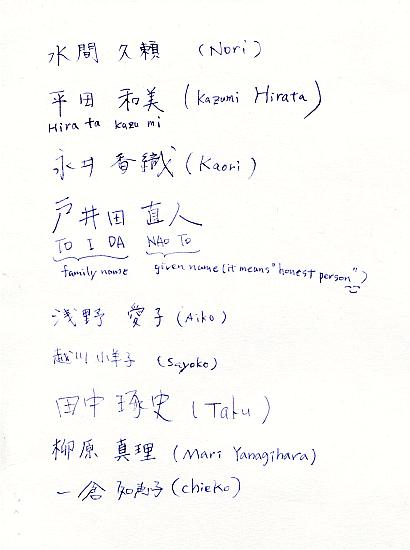 水間 久頼 (Nori)
平田 和美 (Kazumi Hirata)
Hira ta kazu mi
永井 香織 (Kaori)
戸井田 直人
TO I DA NAO TO
family name given name (it means "honest person")
浅野 愛子 (Aiko)
越川 小洋子 (Sayoko)
田中 琢史 (Taku)
柳原 真理 (Mari Yanagihara)
一倉 知恵子 (chieko)